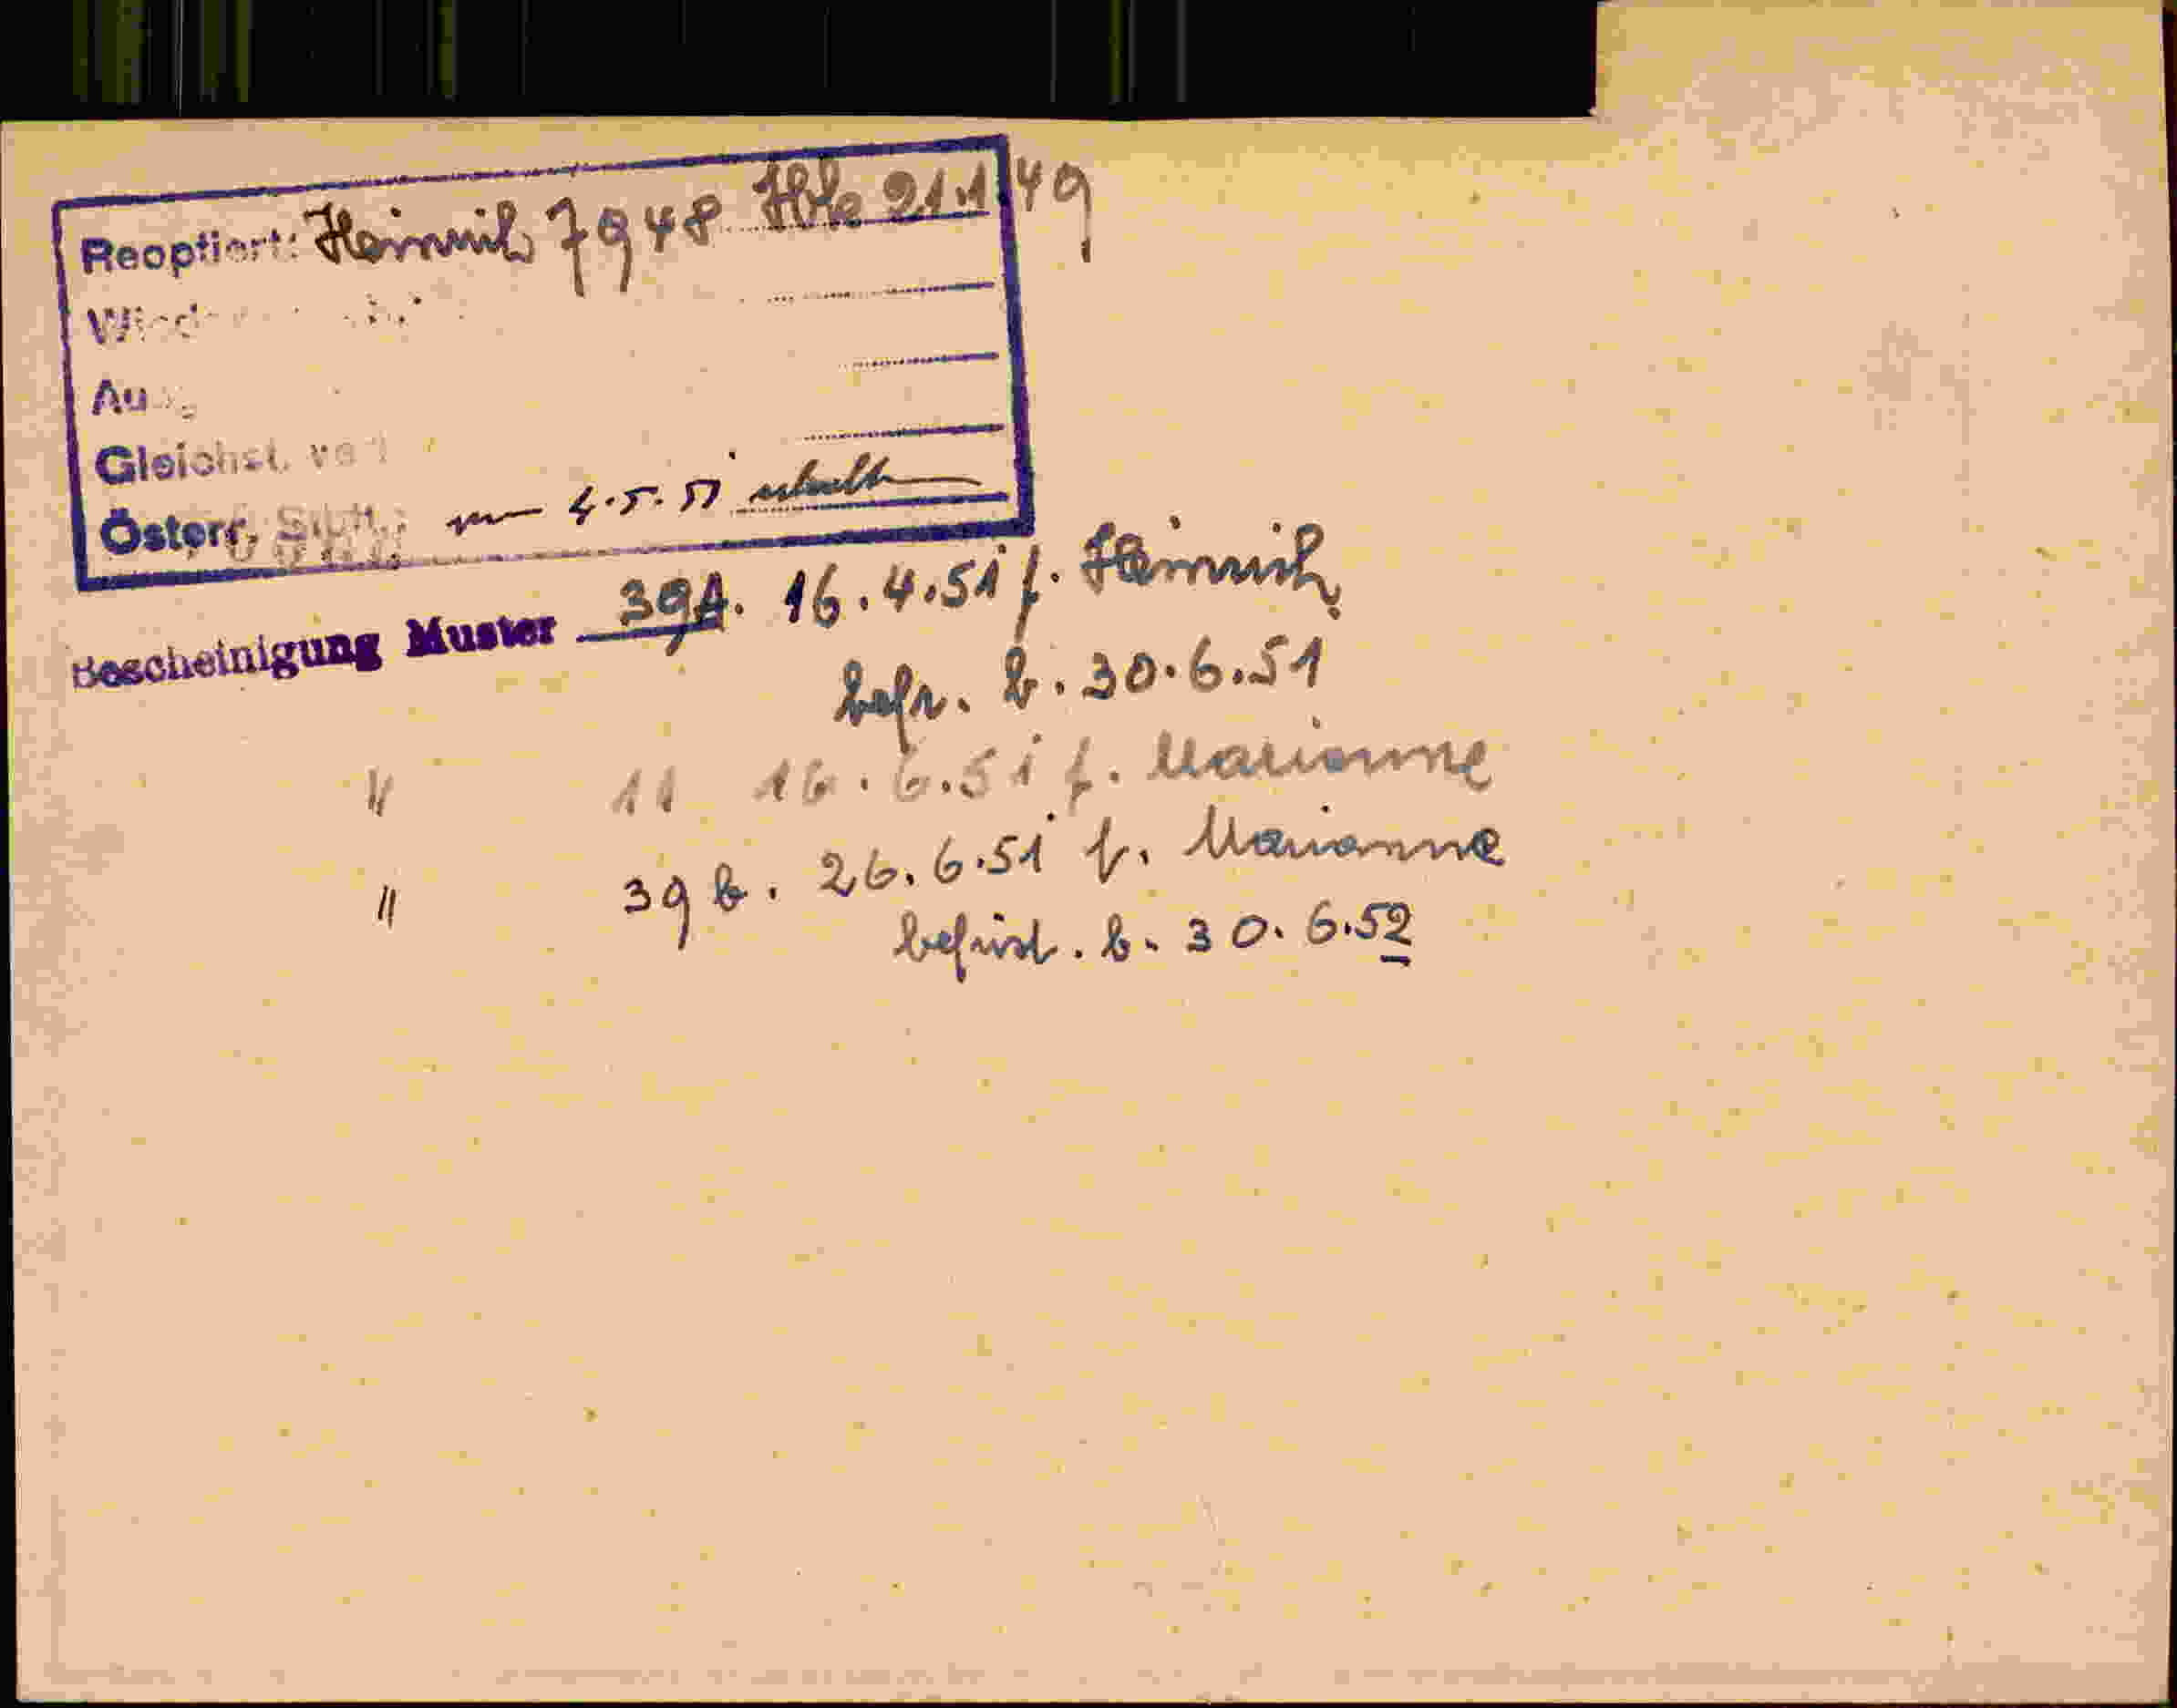 Reoptiert: Heinrich 7948 21.1.49
Gleichst.
Österr. 4.5.51
Bescheinigung Muster 39A. 16.4.51 f. Heinrich
befr. b. 30.6.51
" 11 16.6.51 f. Marianne
" 39 b. 26.6.51 f. Marianne
befrist. b. 30.6.52